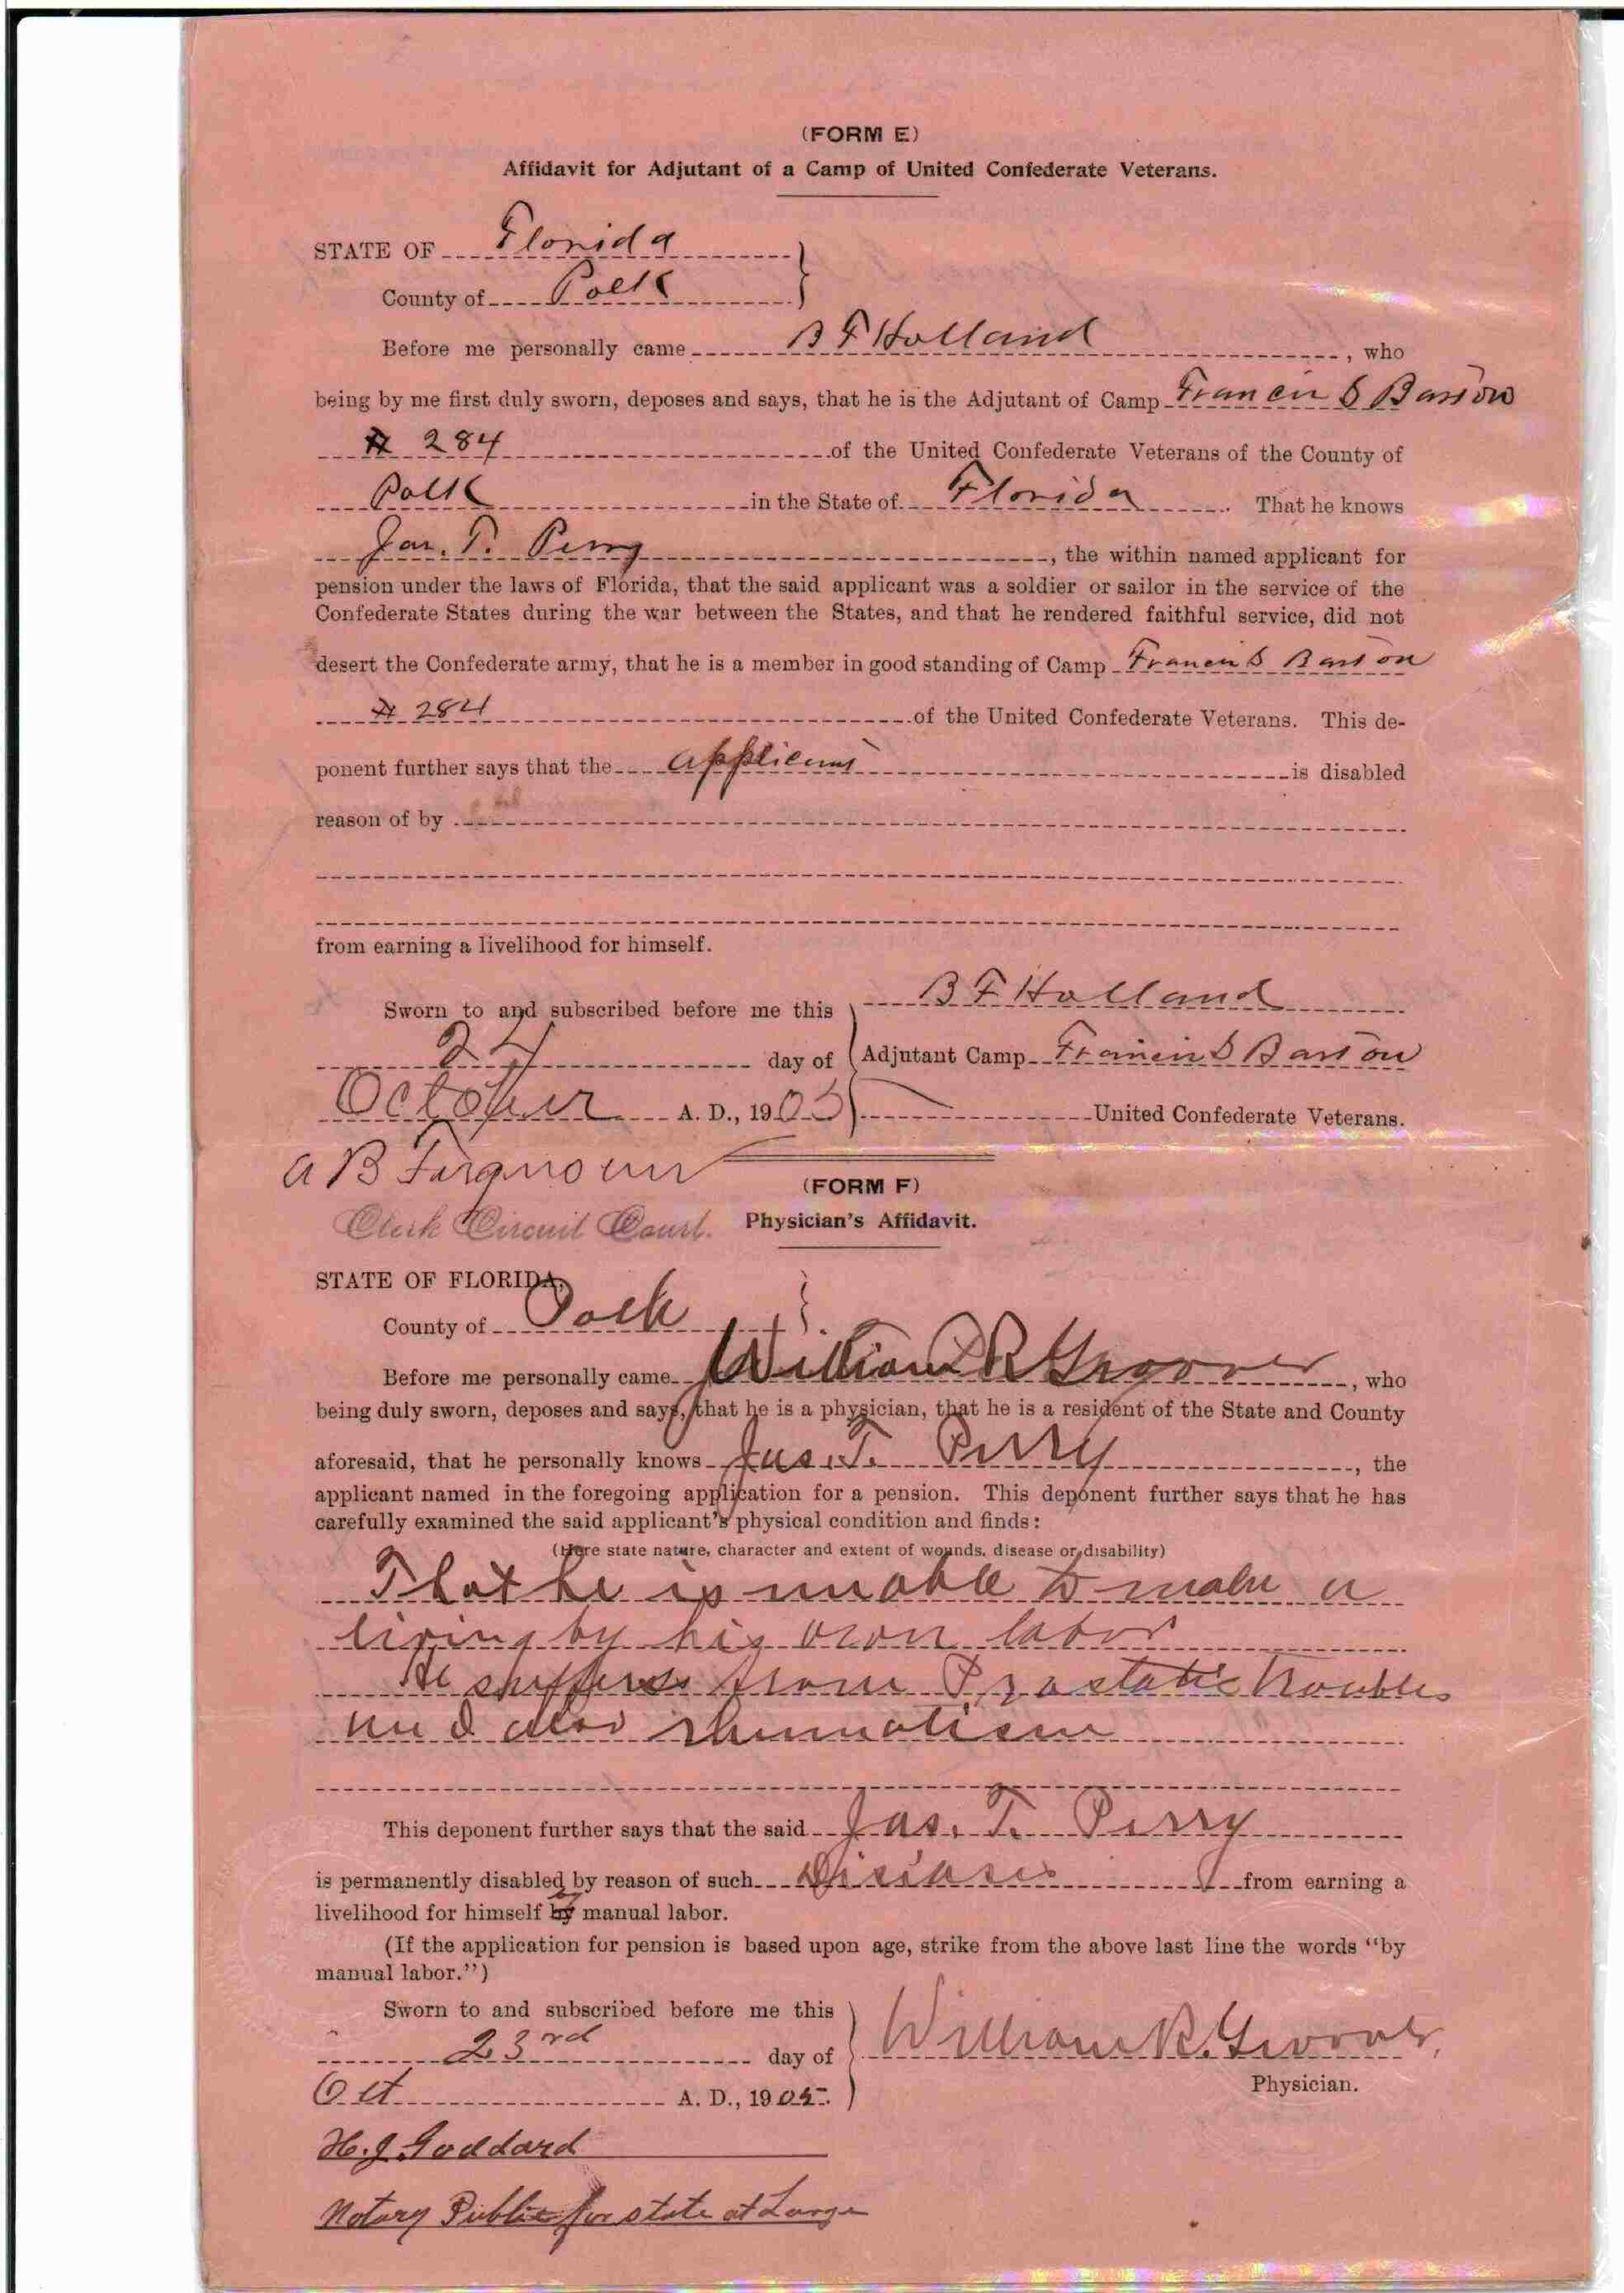 (FORM E)
Affidavit for Adjutant of a Camp of United Confederate Veterans.
STATE OF Florida
County of Polk
Before me personally came B F Holland, who
being by me first duly sworn, deposes and says, that he is the Adjutant of Camp Francis S Bartow
# 284 of the United Confederate Veterans of the County of
Polk in the State of Florida. That he knows
Jas. T. Perry, the within named applicant for
pension under the laws of Florida, that the said applicant was a soldier or sailor in the service of the
Confederate States during the war between the States, and that he rendered faithful service, did not
desert the Confederate army, that he is a member in good standing of Camp Francis S Bartow
# 284 of the United Confederate Veterans. This de-
ponent further says that the applicant is disabled
reason of by
from earning a livelihood for himself.
Sworn to and subscribed before me this
B F Holland
24 day of
Adjutant Camp Francis S Bartow
October A. D., 1905
United Confederate Veterans.
A B Ferguson
Clerk Circuit Court.
(FORM F)
Physician's Affidavit.
STATE OF FLORIDA,
County of Polk
Before me personally came William R Groover, who
being duly sworn, deposes and says, that he is a physician, that he is a resident of the State and County
aforesaid, that he personally knows Jas. T. Perry, the
applicant named in the foregoing application for a pension. This deponent further says that he has
carefully examined the said applicant's physical condition and finds:
(Here state nature, character and extent of wounds, disease or disability)
That he is unable to make a
living by his own labor
He suffers from Prostatic troubles
and also rheumatism
This deponent further says that the said Jas. T. Perry
is permanently disabled by reason of such Diseases from earning a
livelihood for himself by manual labor.
(If the application for pension is based upon age, strike from the above last line the words "by
manual labor.")
Sworn to and subscribed before me this
23rd day of
William R. Groover,
Oct A. D., 1905.
Physician.
H. J. Goddard
Notary Public for state at Large